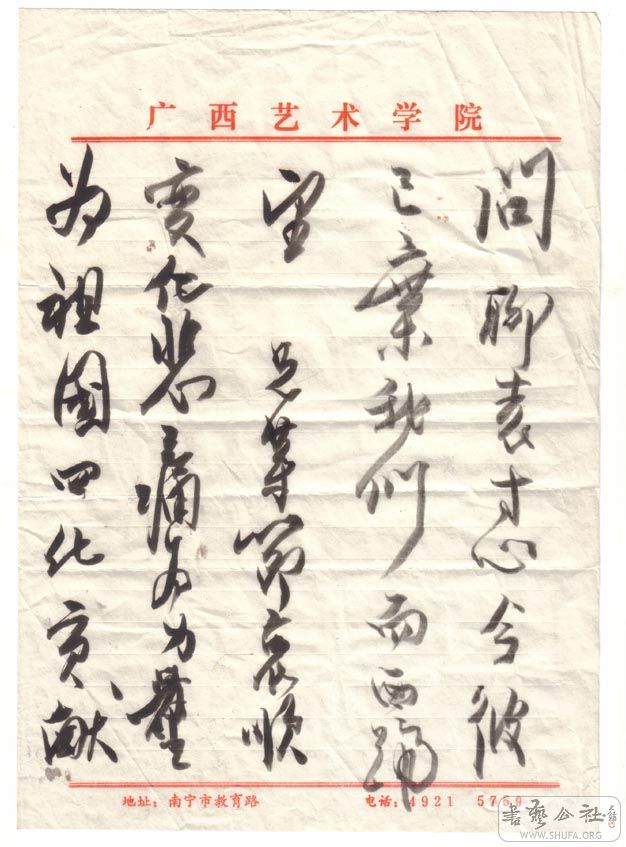 广西艺术学院
问聊表寸心今彼
已弃我们而西归
望 兄等节哀顺
变化悲痛为力量
为祖国四化贡献
地址：南宁市教育路 电话：4921 5759
书艺公社
WWW.SHUFA.ORG